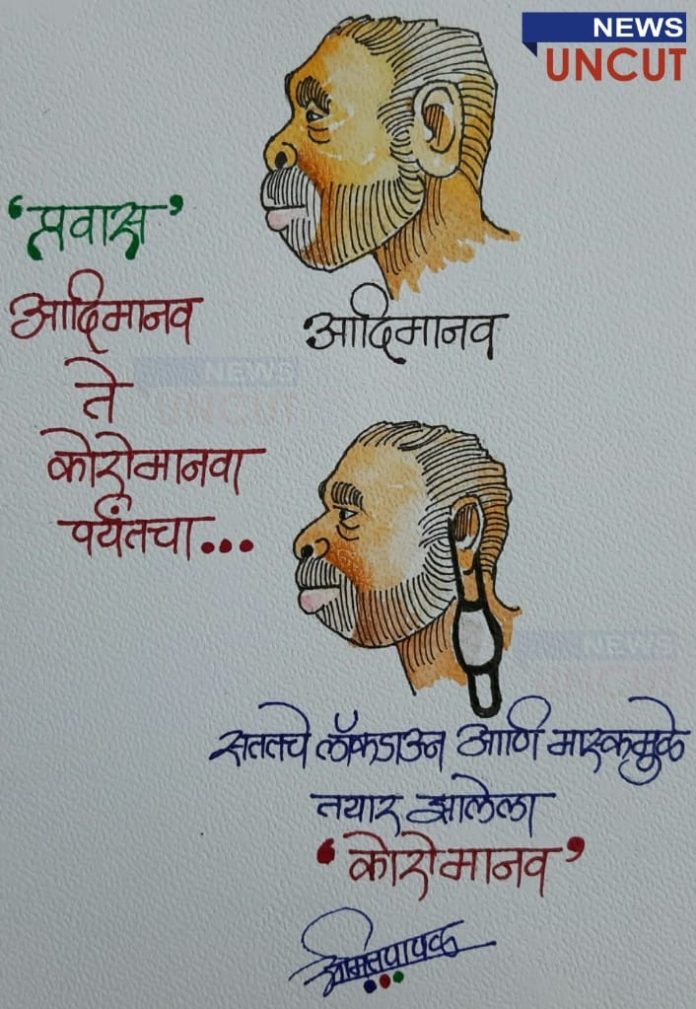 NEWS
UNCUT
'प्रवास'
आदिमानव
ते
कोरोमानवा
पर्यंतचा...
आदिमानव
NEWS
UNCUT
NEWS
UNCUT
सततचे लॉकडाऊन आणि मास्कमुळे
तयार झालेला
'कोरोमानव'